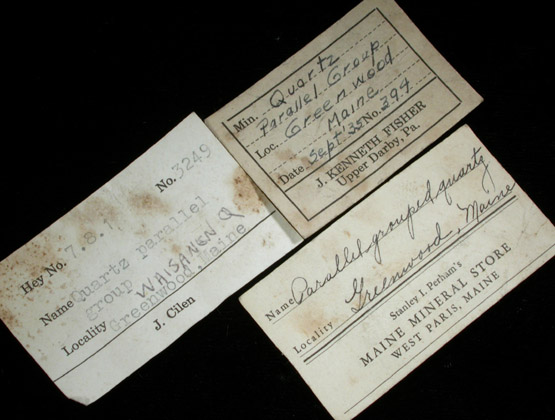 Min. Quartz
Parallel Group
Loc. Greenwood
Maine
Date Sept '35 No. 394
J. KENNETH FISHER
Upper Darby, Pa.
No. 3249
Hey No. 7.8.1
Name Quartz parallel
group WAISANEN Q
Locality Greenwood, Maine
J. Cilen
Name Parallel grouped quartz
Locality Greenwood, Maine
Stanley I. Perham's
MAINE MINERAL STORE
WEST PARIS, MAINE